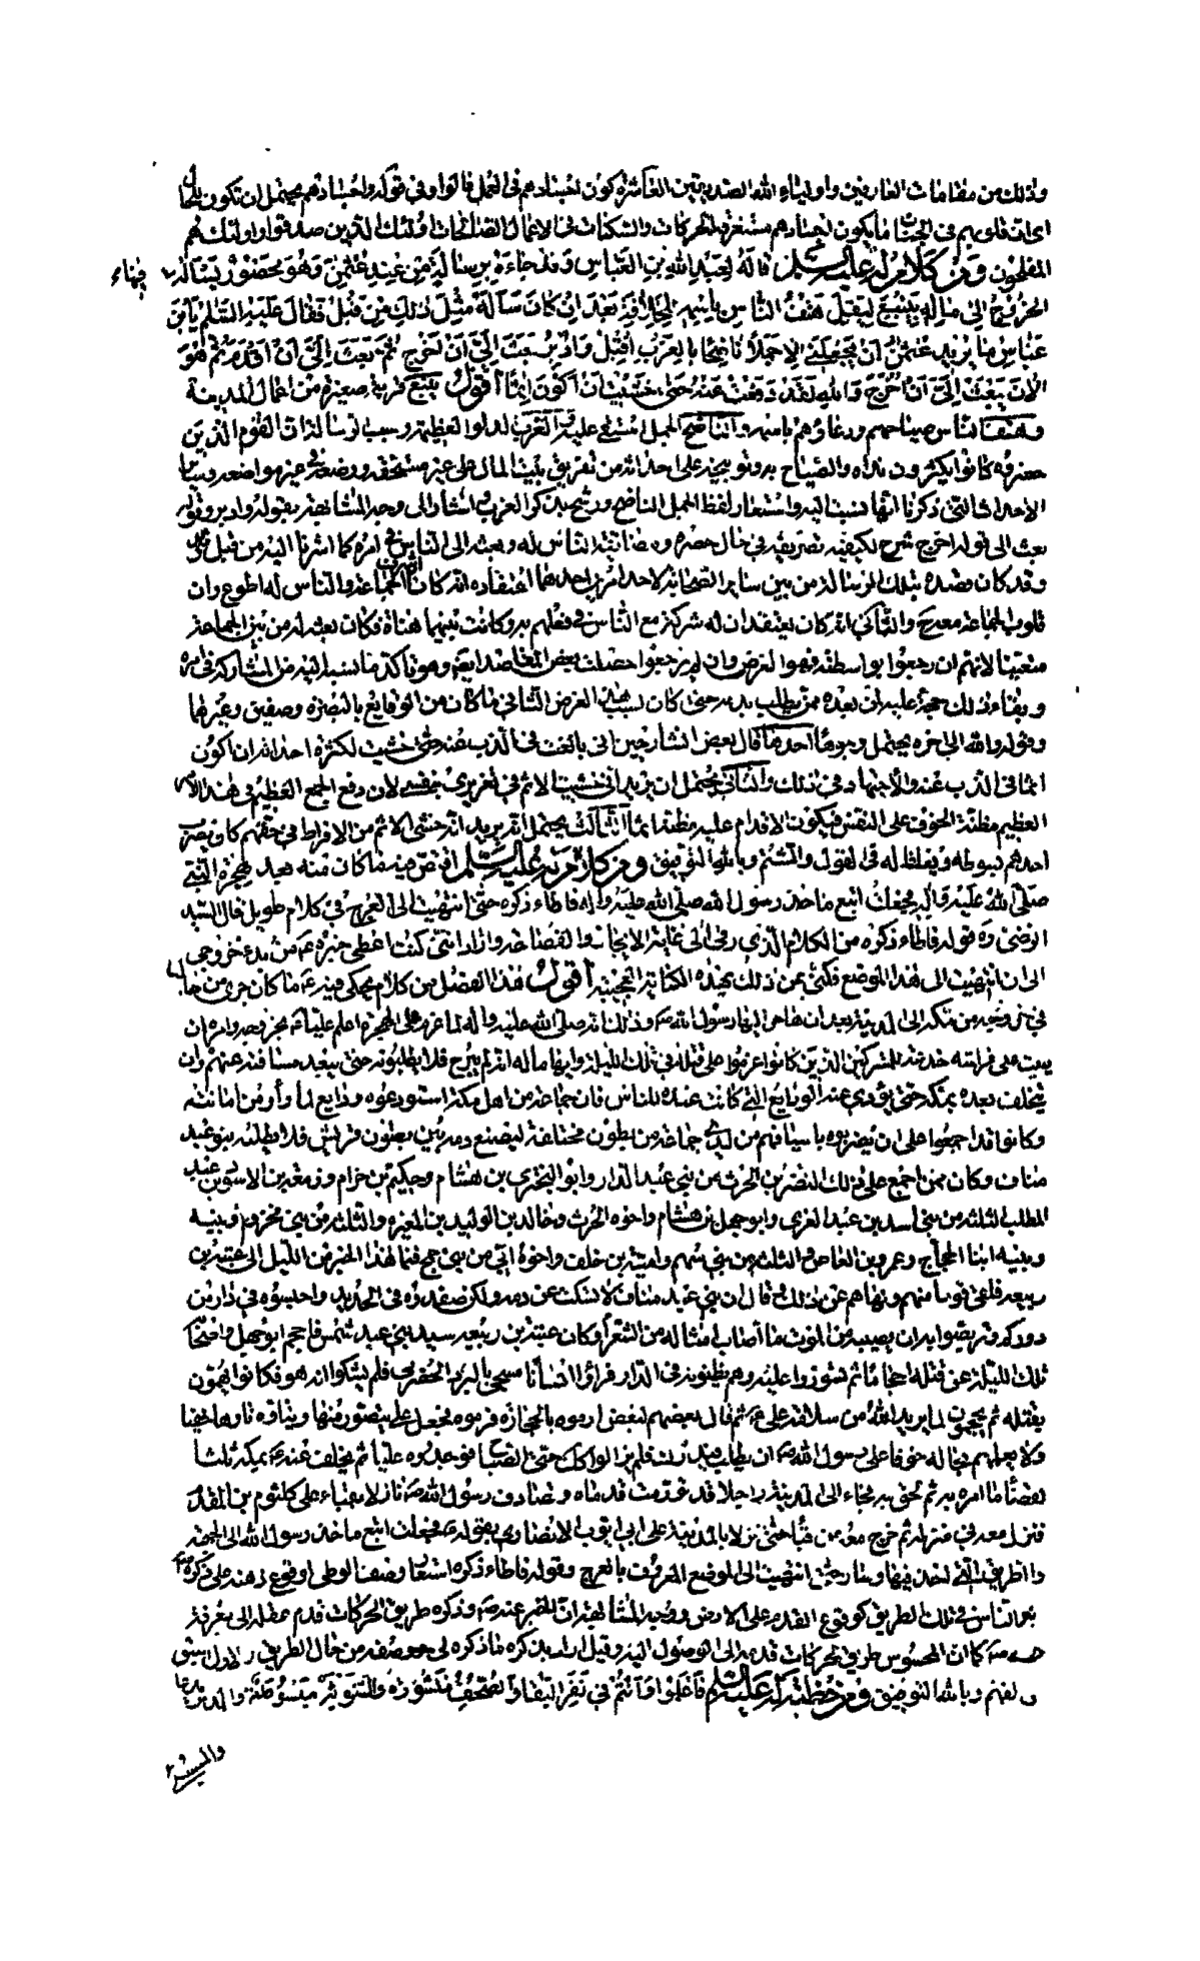 وذلك من مقامات العارفين واولياء الله الصديقين العاشرة كون اجسادهم في العمل قالوا وفي قوله واجسادهم يحتمل ان تكون
اى ان قلوبهم في الجنان ما يكون اجسادهم مستغرقة الحركات والسكنات في الاعمال الصالحات اولئك الذين صدقوا واولئك هم
المفلحون ومن كلام له عليه السلام قاله لعبد الله بن العباس وقد جاءه برسالة من عند عثمن وهو محصور يسأله فيها
الخروج الى ماله بينبع ليقل هتف الناس باسمه للخلافة بعد ان كان سأله مثل ذلك من قبل فقال عليه السلم يا بن
عباس ما يريد عثمن ان يجعلني الا جملا ناضحا بالغرب اقبل وادبر بعث الي ان اخرج ثم بعث الي ان اقدم ثم هو
الان يبعث الي ان اخرج والله لقد دفعت عنه حتى خشيت ان اكون اثما اقول ينبع قرية صغيرة من اعمال المدينة
وهتف الناس صياحهم ودعاؤهم باسمه والناضح الجمل استسقى عليه والغرب الدلو العظيمة وسبب الرسالة ان القوم الذين
حصروه كانوا يكثرون نداه والصياح به وتوبيخه على احداثه من تفريق بيت المال على غير مستحقه ووضعه في غير مواضعه وسائر
الاحداث التي ذكرنا انها نسبت اليه واستعار لفظ الجمل الناضح ورشح بذكر الغرب واشار الى وجه المشابهة بقوله اقبل وادبر وقوله
بعث الى قوله اخرج شرح لكيفية تصريفه في حال حصره ومضايقة الناس له وبعثه الى الناس في امره كما اشرنا اليه من قبل
وقد كان قصده بتلك الرسالة من بين ساير الصحابة لاحد امرين احدهما اعتقاده انه كان اشرف الجماعة والناس له اطوع وان
قلوب الجماعة معه والثاني انه كان يعتقد ان له شركة مع الناس في فعلهم به وكانت بينهما هناة فكان بعثه له من بين الجماعة
متعينا لانهم ان رجعوا بواسطته فهو الغرض وان لم يرجعوا حصلت بعض المقاصد ايضا وهو تاكد ما نسبه اليه من المشاركة في امره
وبقاء ذلك حجة عليه لمن بعده ممن يطلب بدمه حتى كان بسبب هذا الغرض الثاني ما كان من الوقايع بالبصرة وصفين وغيرهما
وقوله والله الى اخره يحتمل وجوها احدها قال بعض الشارحين اني بالغت في الذب عنه حتى خشيت لكثرة احداثه ان اكون
اثما في الذب عنه والاجتهاد في ذلك والثاني يحتمل ان يريد اني خشيت الاثم في تغريري بنفسي لان دفع الجمع العظيم في هذا الامر
العظيم مظنة الخوف على النفس فيكون الاقدام عليه مظنة اثم الثالث يحتمل انه يريد انه خشى الاثم من الافراط في حقهم كان يضرب
احدهم بسوطه ويغلظ له في القول والشتم وبالله التوفيق ومن كلام له عليه السلم اقتص فيه ما كان منه بعد هجرة النبي
صلى الله عليه واله فجعلت اتبع ماخذ رسول الله صلى الله عليه واله فاطاء ذكره حتى انتهيت الى العرج في كلام طويل قال السيد
الرضى ره قوله فاطاء ذكره من الكلام الذي رمى الى غاية الايجاز والفصاحة واراد انني كنت اعطى خبره من بدء خروجى
الى ان انتهيت الى هذا الموضع فكنى عن ذلك بهذه الكناية العجيبة اقول هذا الفصل من كلام يحكى فيه ما كان جرى من حاله
في خروجه من مكة الى المدينة بعد ان هاجر اليها رسول الله وذلك انه صلى الله عليه واله لما عزم على الهجرة اعلم عليا بخروجه وامره ان
يبيت على فراشه خدعة للمشركين الذين كانوا عزموا على قتله في تلك الليلة وايهاما له انه لم يبرح فلا يطلبونه حتى يبعد مسافته عنهم وان
يتخلف بعده بمكة حتى يؤدي عنه الودايع التي كانت عنده للناس فان جماعة من اهل مكة استودعوه ودايع لما رأوا من امانته
وكانوا قد اجمعوا على ان يضربوه باسيافهم من ايدي جماعة من بطون مختلفة ليضيع دمه بين بطون قريش فلا يطلبه بنو عبد
مناف وكان ممن اجمع على ذلك النضر بن الحرث من بني عبد الدار وابو البختري بن هشام وحكيم بن حزام وزمعة بن الاسود بن عبد
المطلب الثلثة من بني اسد بن عبد العزى وابو جهل بن هشام واخوه الحرث وخالد بن الوليد بن المغيرة والثلثة من بني مخزوم ونبيه
ومنبه ابنا الحجاج وعمرو بن العاص والثلثة من بني سهم وامية بن خلف واخوه ابي من بني جمح فنما هذا الخبر من الليل الى عتبة بن
ربيعة فلقى قوما منهم ونهاهم عن ذلك وقال ان بني عبد مناف لا تسكت عن دمه ولكن صفدوه في الحديد واحبسوه في دار من
دوركم وتربصوا به ان يصيبه من الموت ما اصاب امثاله من الشعراء وكان عتبة بن ربيعة سيد بني عبد شمس فاحجم ابو جهل واصحابه
تلك الليلة عن قتله احجاما ثم تسوروا عليه وهم يظنونه في الدار فراوا انسانا مسجى بالبرد الحضرمى فلم يشكوا انه هو فكانوا يهمون
بقتله ثم يحجمون لما يريد الله من سلامة على ثم قال بعضهم لبعض ارموه بالحجارة فرموه فجعل على يتضور منها ويتاوه تاوها خفيا
ولا يعلمهم بحاله خوفا على رسول الله ان يطلب فيدرك فلم يزالوا كذلك حتى الصباح فوجدوه عليا ثم تخلف عنه بمكة ثلثا
لقضاء ما امره به ثم لحق به فجاء الى المدينة راجلا قد تورمت قدماه وصادف رسول الله نازلا بقباء على كلثوم بن المقدم
فنزل معه في منزله ثم خرج معه من قبا حتى نزلا بالمدينة على ابي ايوب الانصاري بقوله فجعلت اتبع ماخذ رسول الله الى الجهة
والطريق التي اخذ فيها وسار حتى انتهيت الى الموضع المعروف بالعرج وقوله فاطاء ذكره استعار وصف الوطى لوقوع ذهنه على ذكره
الناس في تلك الطريق كوقوع القدم على الارض ووجه المشابهة ان الخبر عنه وذكره طريق الحركات قدم عقله الى معرفة
كما ان المحسوس طريق لحركات قدمه الى الوصول اليه وقيل اراد بذكره ما ذكره لي ووصفه من حال الطريق والاول اسبق
الى الفهم وبالله التوفيق ومن خطبة له عليه السلم فاعملوا وانتم في نفس البقاء والصحف منشورة والتوبة مبسوطة والمدبر يدعا
والمسيء